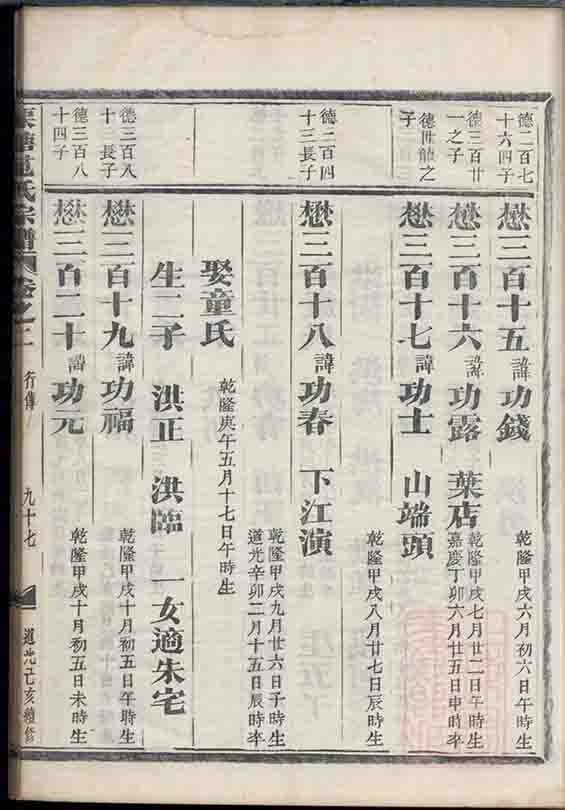 德二百七
十六四子
懋三百十五 諱 功錢
乾隆甲戌六月初六日午時生
德三百廿
一之子
懋三百十六 諱 功露 葉店
乾隆甲戌七月廿二日午時生
嘉慶丁卯六月廿五日申時卒
德世龍之
子
懋三百十七 諱 功士 山端頭
乾隆甲戌八月廿七日辰時生
德二百四
十三長子
懋三百十八 諱 功春 下江演
乾隆甲戌九月廿六日子時生
道光辛卯二月十五日辰時卒
娶童氏
乾隆庚午五月十七日午時生
生二子 洪正 洪臨 一女適朱宅
德三百八
十三長子
懋三百十九 諱 功福
乾隆甲戌十月初五日午時生
德三百八
十四子
懋三百二十 諱 功元
乾隆甲戌十月初五日未時生
氏宗譜 卷之二 行傳 九十七 道光己亥續修